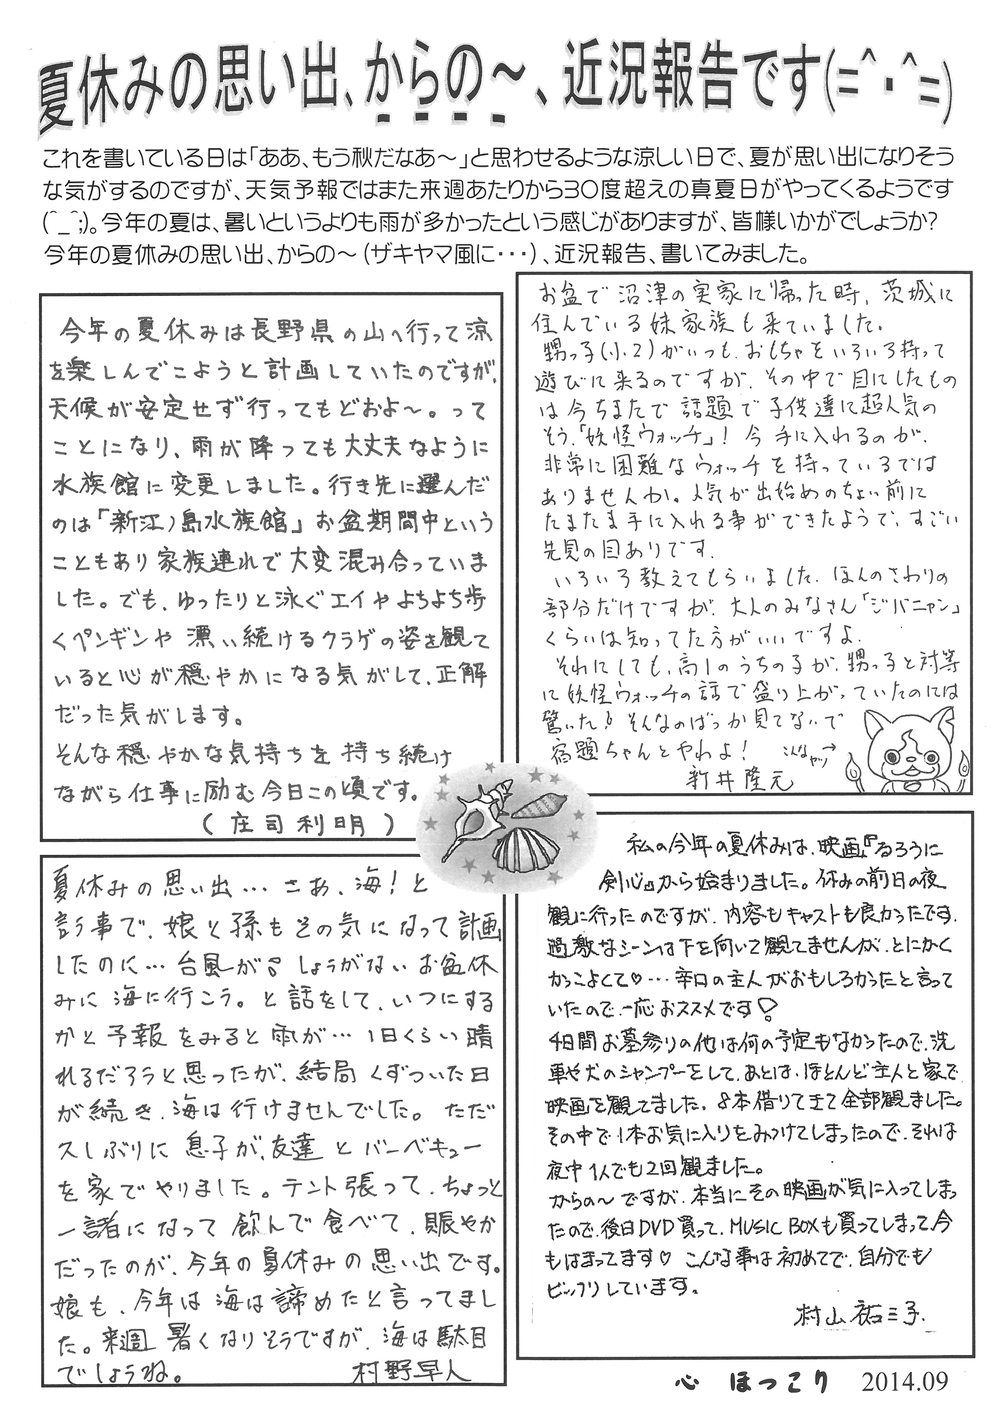 夏休みの思い出、からの～、近況報告です(=^・^=)
これを書いている日は「ああ、もう秋だなあ～」と思わせるような涼しい日で、夏が思い出になりそう
な気がするのですが、天気予報ではまた来週あたりから30度超えの真夏日がやってくるようです
(^_^;)。今年の夏は、暑いというよりも雨が多かったという感じがありますが、皆様いかがでしょうか?
今年の夏休みの思い出、からの～(ザキヤマ風に・・・)、近況報告、書いてみました。
今年の夏休みは長野県の山へ行って涼
を楽しんでこようと計画していたのですが、
天候が安定せず行ってもどおよ～。って
ことになり、雨が降っても大丈夫なように
水族館に変更しました。行き先に選んだ
のは「新江ノ島水族館」お盆期間中という
こともあり家族連れで大変混み合っていま
した。でも、ゆったりと泳ぐエイやよちよち歩
くペンギンや漂い続けるクラゲの姿を観て
いると心が穏やかになる気がして、正解
だった気がします。
そんな穏やかな気持ちを持ち続け
ながら仕事に励む今日この頃です。
(庄司利明)
お盆で沼津の実家に帰った時、茨城に
住んでいる妹家族も来ていました。
甥っ子(小2)がいつも、おもちゃをいろいろ持って
遊びに来るのですが、その中で目にしたもの
は今ちまたで話題で子供達に超人気の
そう、「妖怪ウォッチ」! 今手に入れるのが、
非常に困難なウォッチを持っているでは
ありませんか。人気が出始めのちょい前に
たまたま手に入れる事ができたようで、すごい
先見の目ありです。
いろいろ教えてもらいました。ほんのさわりの
部分だけですが、大人のみなさん「ジバニャン」
くらいは知ってた方がいいですよ。
それにしても、高1のうちの子が、甥っ子と対等
に妖怪ウォッチの話で盛り上がっていたのには
驚いた! そんなのばっか見てないで
宿題ちゃんとやれよ!
こんなヤツ→
新井隆元
夏休みの思い出…さあ、海!と
言う事で、娘と孫もその気になって計画
したのに…台風が しょうがないお盆休
みに海に行こう。と話をして、いつにする
かと予報をみると雨が…1日くらい晴
れるだろうと思ったが、結局くずついた日
が続き、海は行けませんでした。ただ
久しぶりに息子が、友達とバーベキュー
を家でやりました。テント張って、ちょっと
一諸になって飲んで食べて、賑やか
だったのが、今年の夏休みの思い出です。
娘も、今年は海は諦めたと言ってまし
た。来週暑くなりそうですが、海は駄目
でしょうね。 村野早人
私の今年の夏休みは、映画『るろうに
剣心』から始まりました。休みの前日の夜
観に行ったのですが、内容もキャストも良かったです。
過激なシーンは下を向いて観てませんが、とにかく
かっこよくて♡…辛口の主人がおもしろかったと言って
いたので、一応おススメです!
4日間お墓参りの他は何の予定もなかったので、洗
車や犬のシャンプーをして、あとは、ほとんど主人と家で
映画を観てました。8本借りてきて全部観ました。
その中で1本お気に入りをみつけてしまったので、それは
夜中1人でも2回観ました。
からの～ですが、本当にその映画が気に入ってしまっ
たので、後日DVD買って、MUSIC BOXも買ってしまって、今
もはまってます♡ こんな事は初めてで、自分でも
ビックリしています。
村山祐三子
心 ほっこり 2014.09